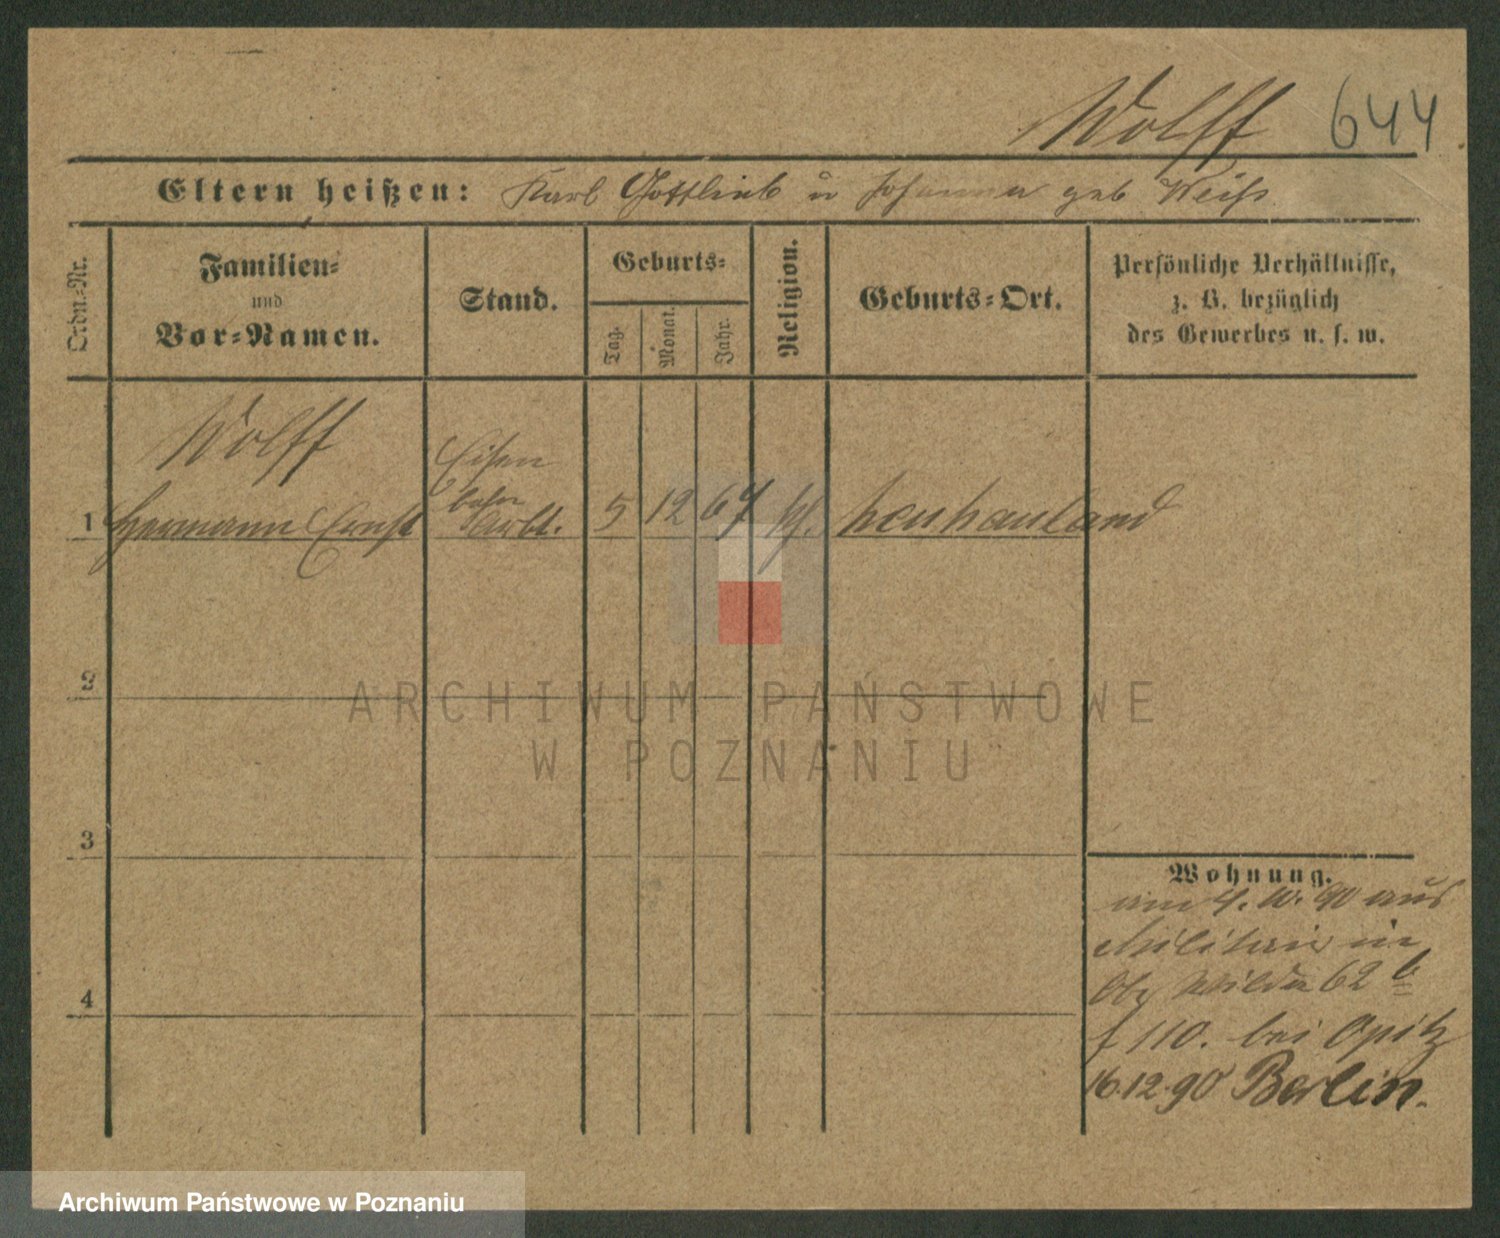 Wolff 644
Eltern heißen: Karl Gottlieb u Johanna geb Weiß
Ordn.-Nr.
Familien-
und
Vor-Namen.
Stand.
Geburts-
Tag.
Monat.
Jahr.
Religion.
Geburts-Ort.
Persönliche Verhältnisse,
z. B. bezüglich
des Gewerbes u. s. w.
Wolff
Eisen
bahn
1 Hermann Ernst Arbt. 5 12 67 Neuhauland
2
ARCHIWUM PAŃSTWOWE
W POZNANIU
3
Wohnung.
am 4. 10. 90 aus
Militair in
Ob. Wilda 62 b
f 110. bei Opitz
4
16.12.90 Berlin.
Archiwum Państwowe w Poznaniu